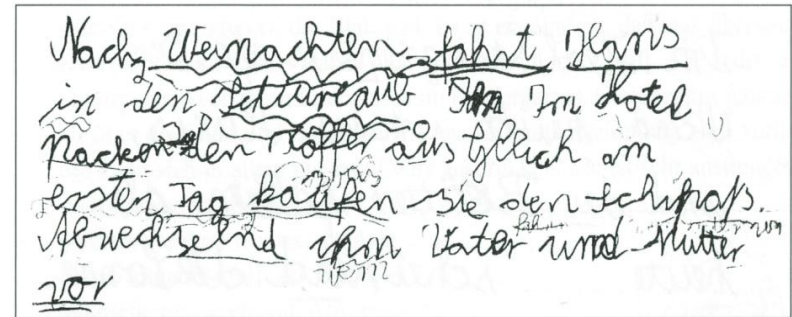 Nach Weinachten fahrt Hans
in den Schiureaub Im Hotel
packen den Koffer aus Gleich am
ersten Tag kaufen Sie den Schipaß.
Abwechzelnd ihm Vater und Mutter
vor